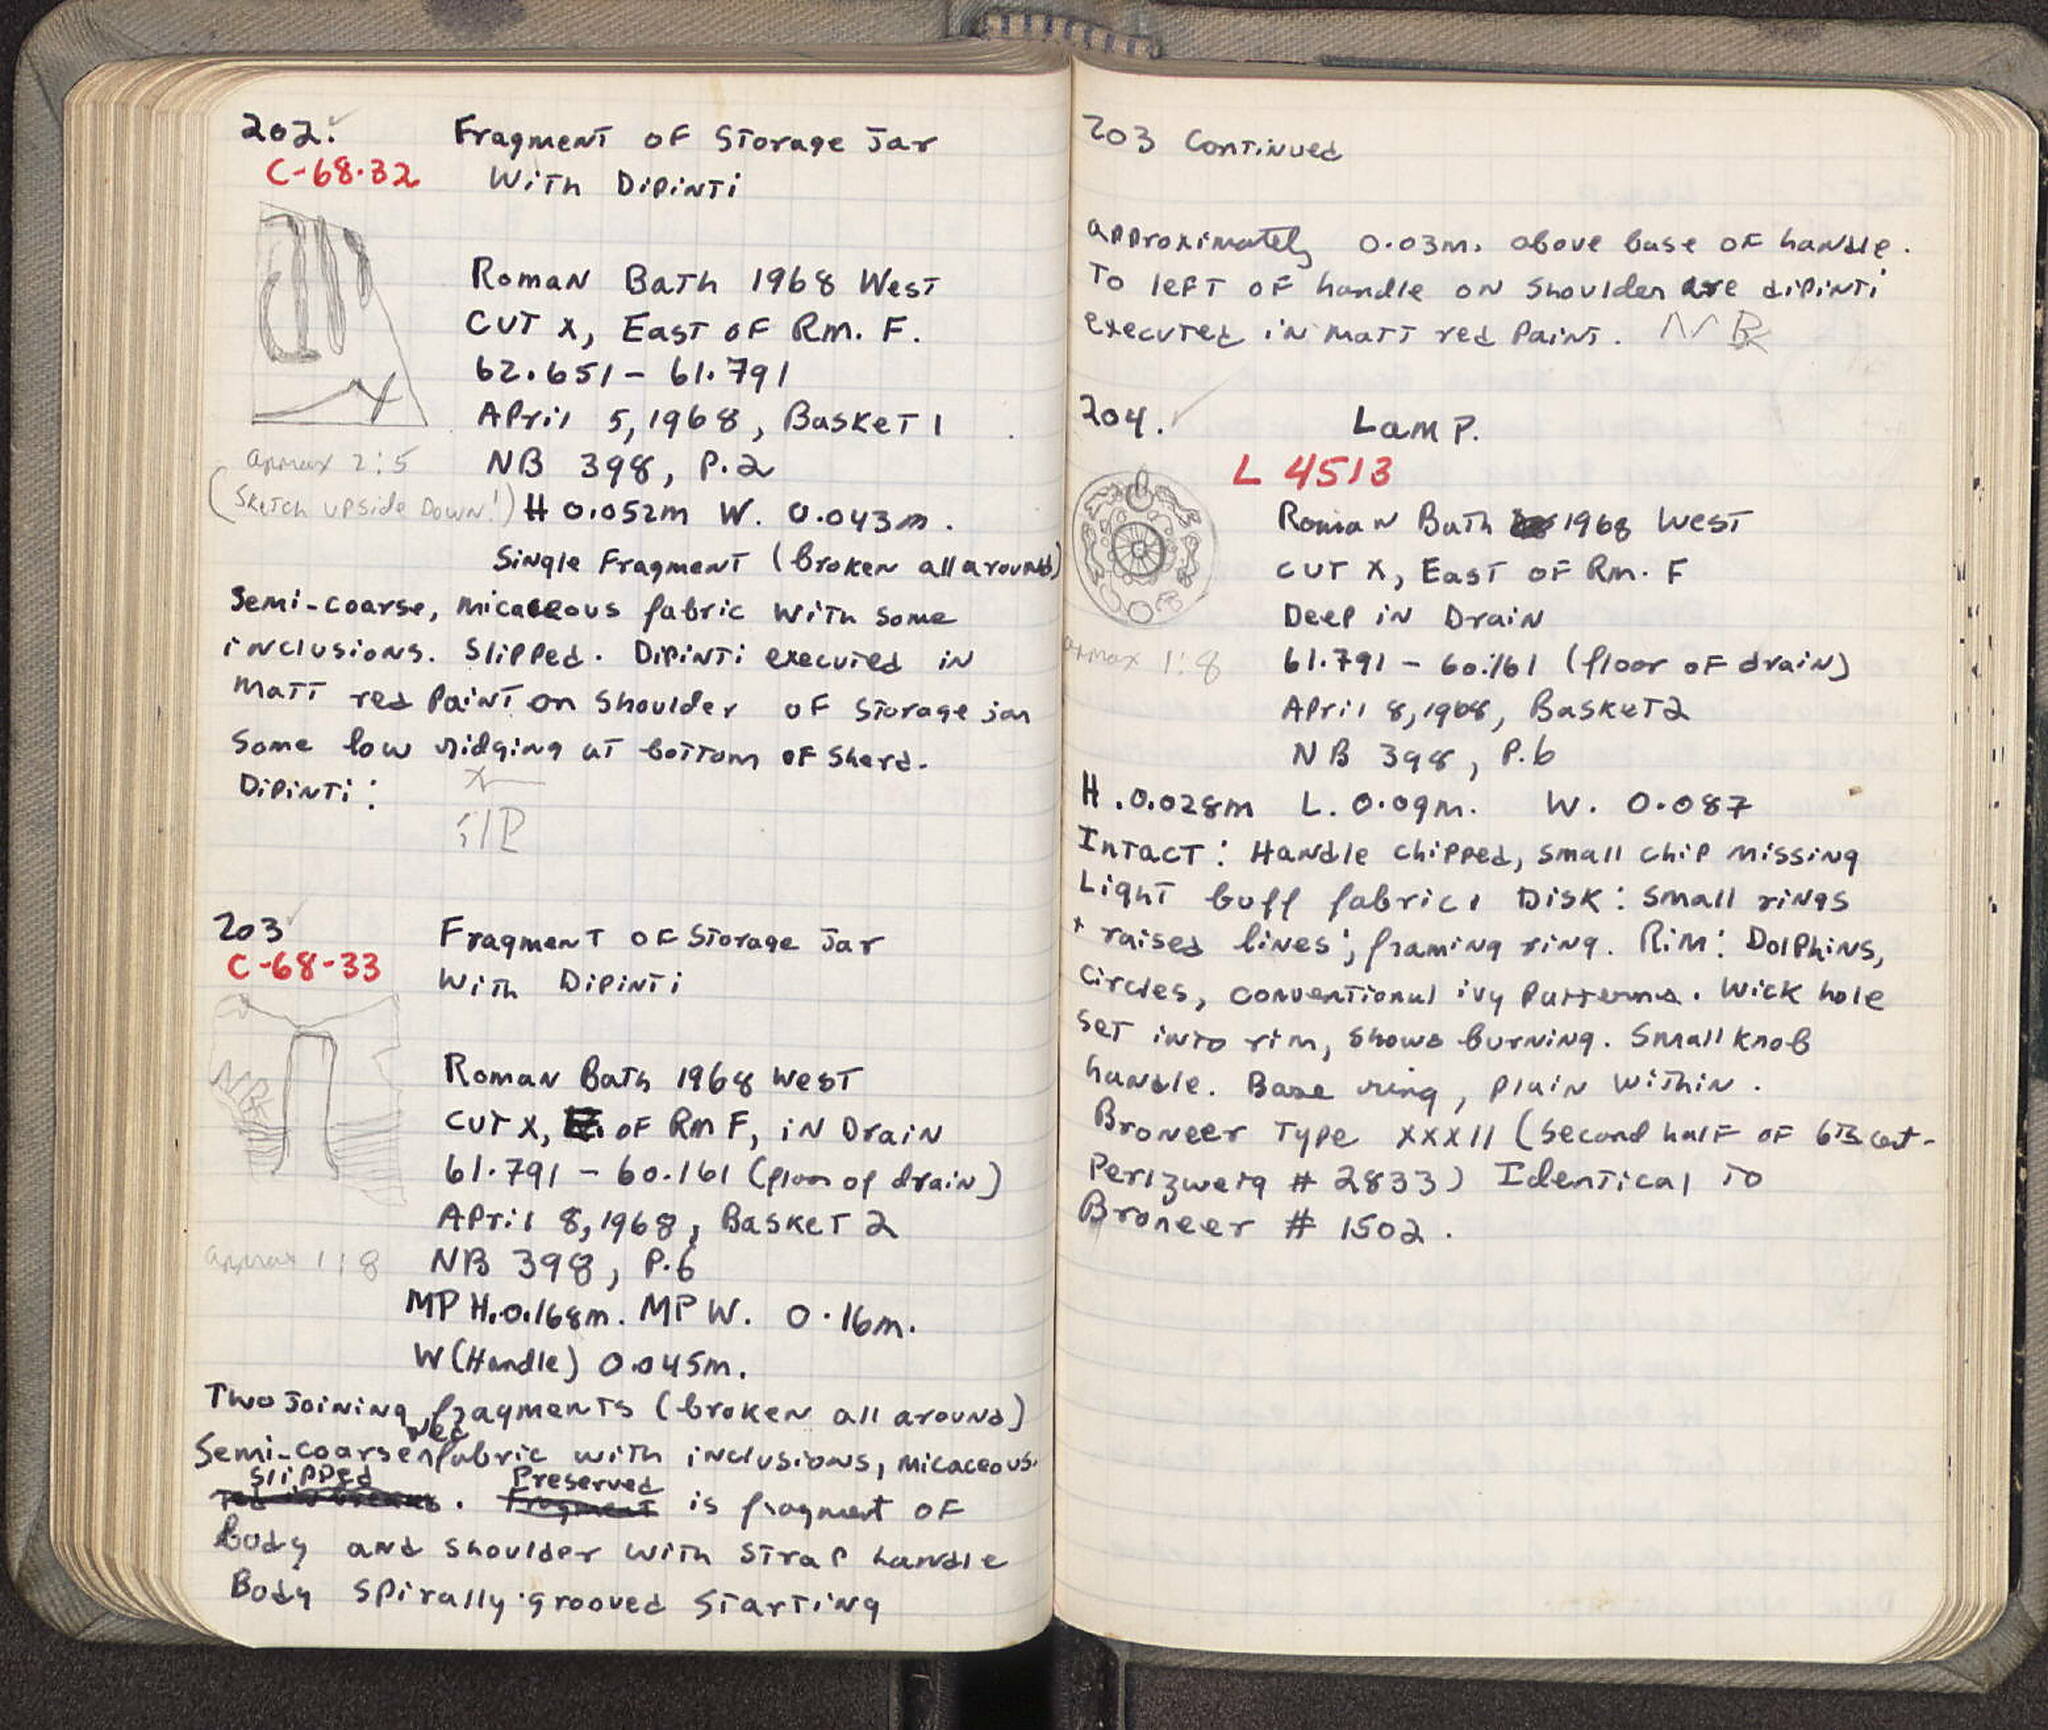 202. Fragment of Storage Jar
C-68-32 With Dipinti
Roman Bath 1968 West
Cut X, East of Rm. F.
62.651 – 61.791
April 5, 1968, Basket 1
approx 2:5
NB 398, P.2
(Sketch upside Down!) H 0.052m W. 0.043m.
Single Fragment (broken all around)
Semi-coarse, micaceous fabric with some
inclusions. Slipped. Dipinti executed in
matt red paint on shoulder of storage jar
Some low ridging at bottom of sherd.
Dipinti:
203 Fragment of Storage Jar
C-68-33 With Dipinti
Roman Bath 1968 West
Cut X, E. of Rm F, in Drain
61.791 – 60.161 (floor of drain)
April 8, 1968, Basket 2
approx 1:8
NB 398, P.6
MP H. 0.168m. MP W. 0.16m.
W (Handle) 0.045m.
Two joining fragments (broken all around)
Semi-coarse red fabric with inclusions, micaceous.
Slipped. Preserved is fragment of
Body and shoulder with strap handle
Body spirally grooved starting
203 Continued
approximately 0.03m. above base of handle.
To left of handle on shoulder are dipinti
executed in matt red paint.
204. Lamp.
L 4513
Roman Bath 1968 West
Cut X, East of Rm. F
Deep in Drain
approx 1:8
61.791 – 60.161 (floor of drain)
April 8, 1968, Basket 2
NB 398, P.6
H. 0.028m L. 0.09m. W. 0.087
Intact: Handle chipped, small chip missing
Light buff fabric. Disk: small rings
+ raised lines; framing ring. Rim: Dolphins,
circles, conventional ivy patterns. Wick hole
set into rim, shows burning. Small knob
handle. Base ring, plain within.
Broneer Type XXXII (second half of 6th cent-
Perlzweig # 2833) Identical to
Broneer # 1502.